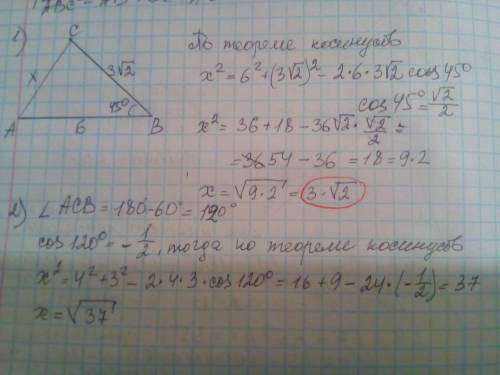 1)
C
x
3√2
45°
A
6
B
По теореме косинусов
x² = 6² + (3√2)² − 2·6·3√2 cos 45°
cos 45° = √2/2
x² = 36 + 18 − 36√2 · √2/2 =
= 54 − 36 = 18 = 9·2
x = √9·2 = 3·√2
2) ∠ ACB = 180 − 60° = 120°
cos 120° = − 1/2, тогда по теореме косинусов
x² = 4² + 3² − 2·4·3·cos 120° = 16 + 9 − 24·(−1/2) = 37
x = √37